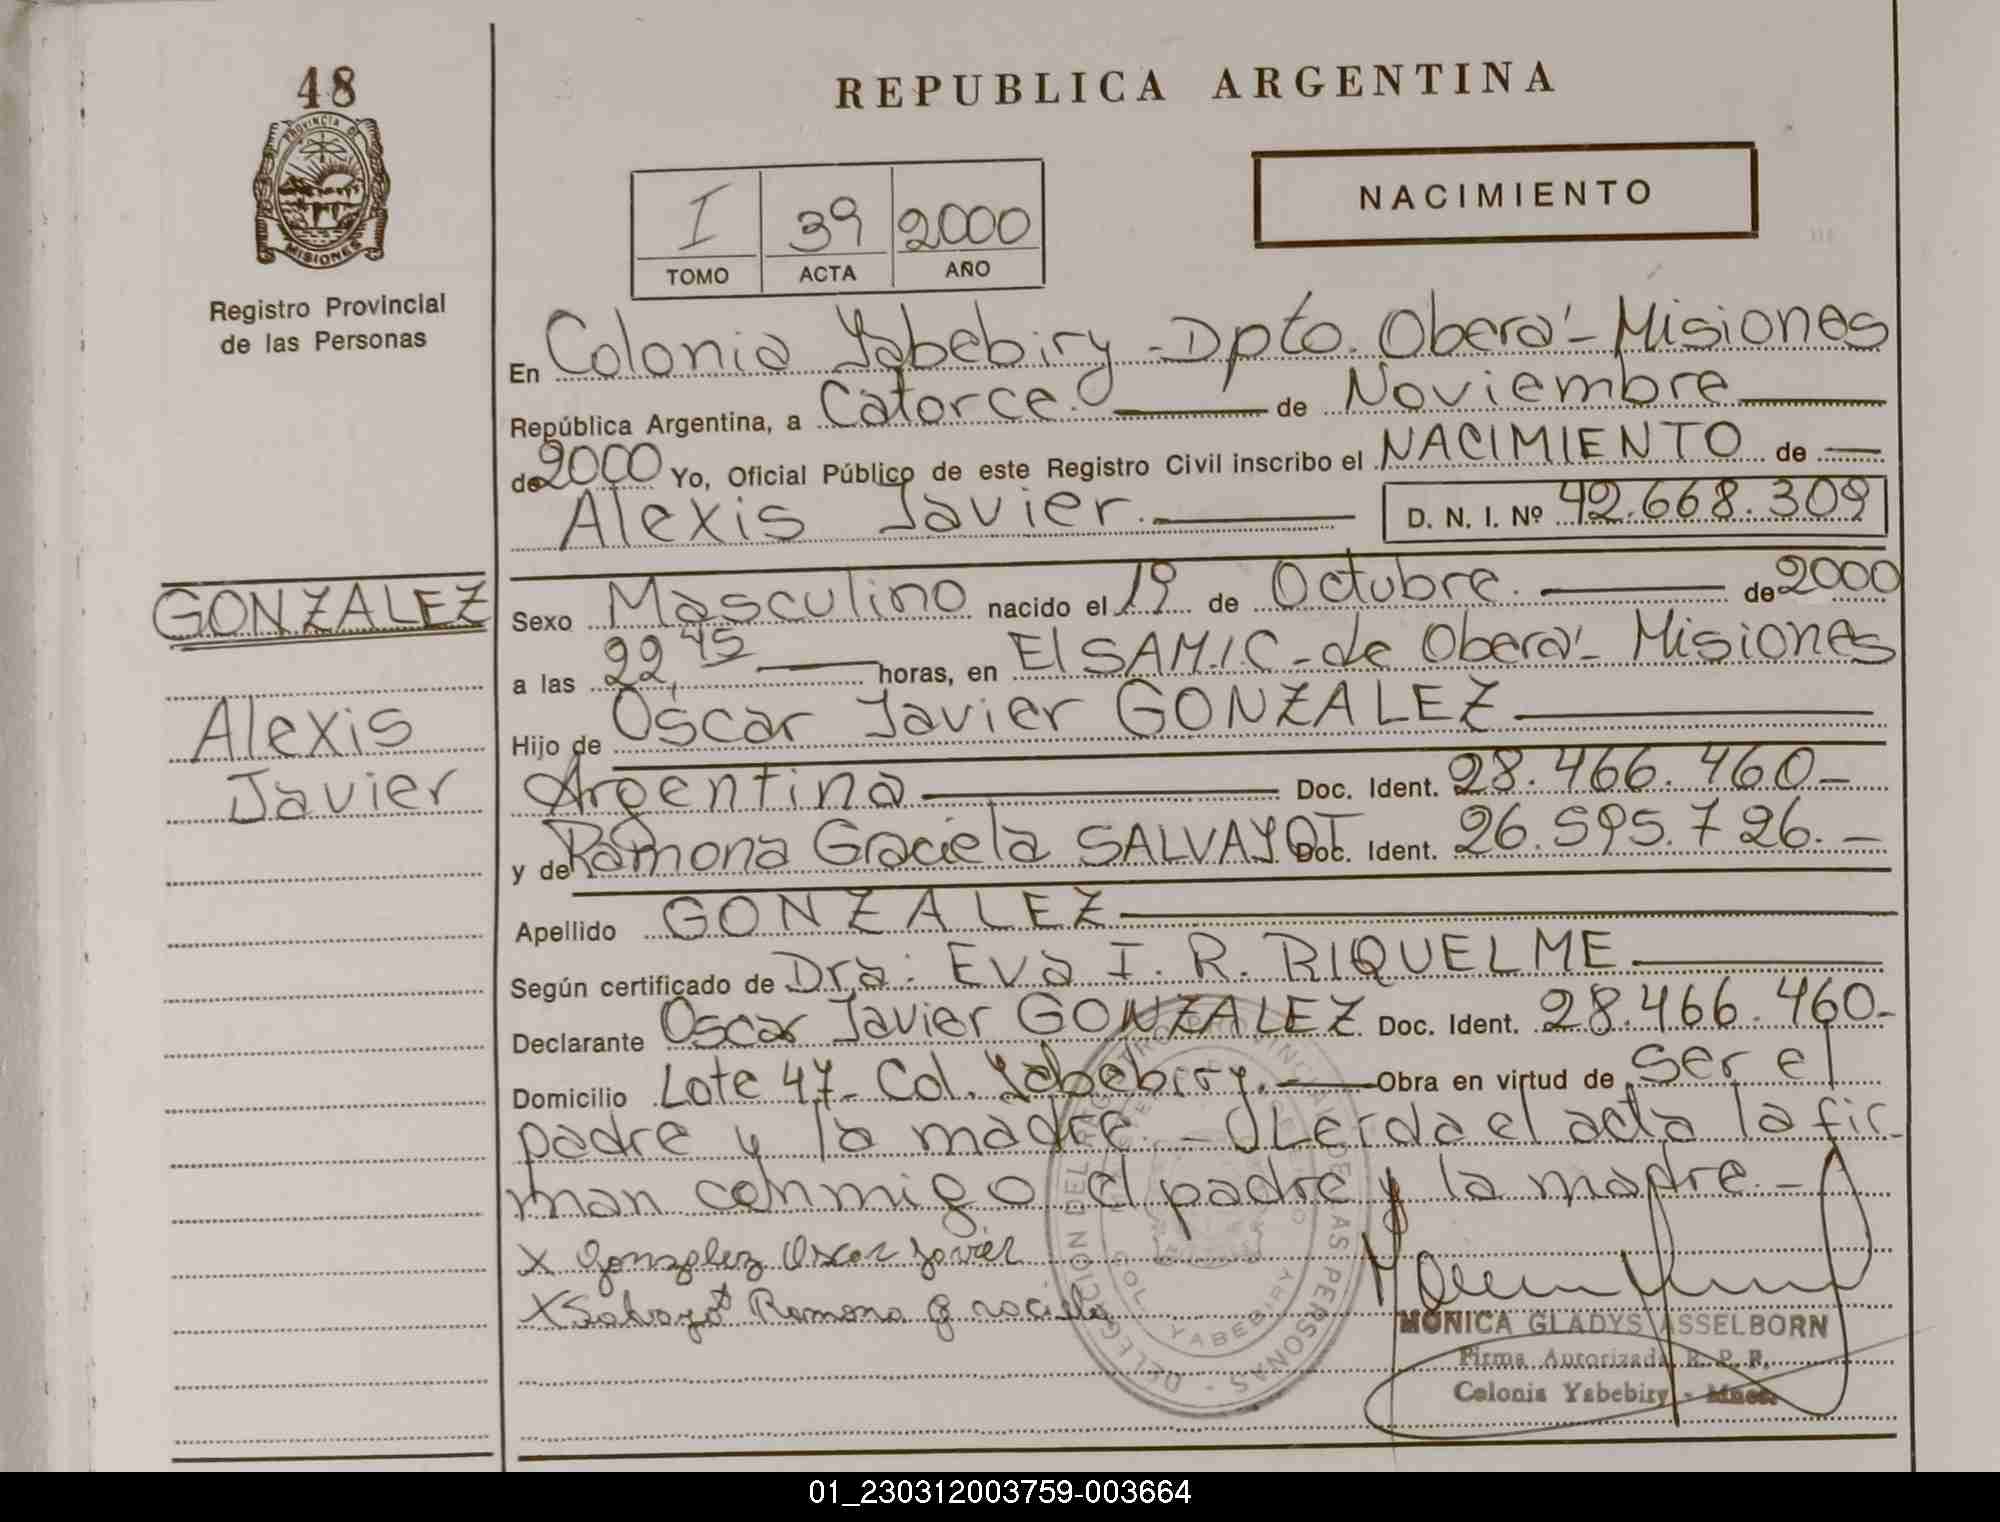 48
PROVINCIA DE
MISIONES
Registro Provincial
de las Personas
REPUBLICA ARGENTINA
NACIMIENTO
I 39 2000
TOMO ACTA AÑO
En Colonia Yabebiry - Dpto. Oberá - Misiones
República Argentina, a Catorce. de Noviembre
de 2000 Yo, Oficial Público de este Registro Civil inscribo el NACIMIENTO de
Alexis Javier. D. N. I. Nº 42.668.309
GONZALEZ
Alexis
Javier
Sexo Masculino nacido el 19 de Octubre. de 2000
a las 22,45 horas, en El SAMIC - de Oberá - Misiones
Hijo de Oscar Javier GONZALEZ
Argentina Doc. Ident. 28.466.460-
y de Ramona Graciela SALVAYOT Doc. Ident. 26.595.726. -
Apellido GONZALEZ
Según certificado de Dra: Eva I. R. RIQUELME
Declarante Oscar Javier GONZALEZ Doc. Ident. 28.466.460-
Domicilio Lote 47 - Col. Yabebiry. Obra en virtud de ser el
padre y la madre. - Leída el acta la fir-
man conmigo el padre y la madre. -
X Gonzalez Oscar Javier
X Salvayot Ramona Graciela
DELEGACION DEL REGISTRO PROVINCIAL DE LAS PERSONAS -
COL. YABEBIRY
MONICA GLADYS ASSELBORN
Firma Autorizada R. P. P.
Colonia Yabebiry - Mnes.
01_230312003759-003664